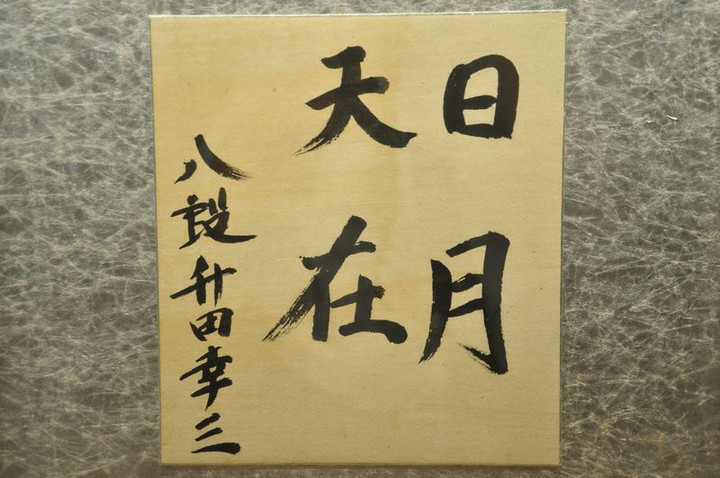 日月
天在
八段升田幸三